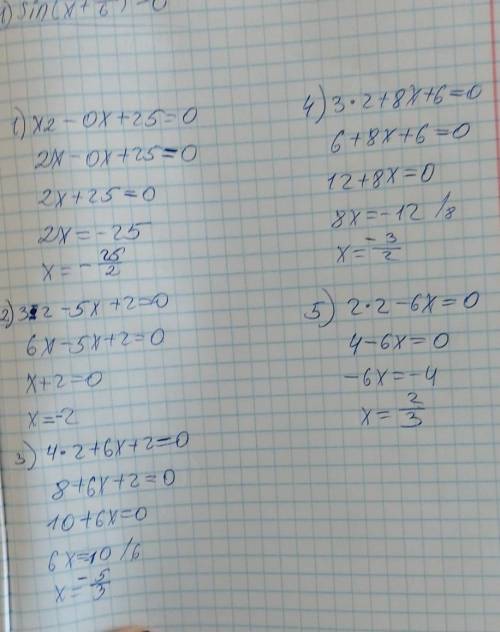 1) sin(x+
1) x2-0x+25=0
2x-0x+25=0
2x+25=0
2x=-25
x=-25/2
2) 3*2-5x+2=0
6x-5x+2=0
x+2=0
x=-2
3) 4*2+6x+2=0
8+6x+2=0
10+6x=0
6x=-10 /6
x=-5/3
4) 3*2+8x+6=0
6+8x+6=0
12+8x=0
8x=-12 /8
x=-3/2
5) 2*2-6x=0
4-6x=0
-6x=-4
x=2/3